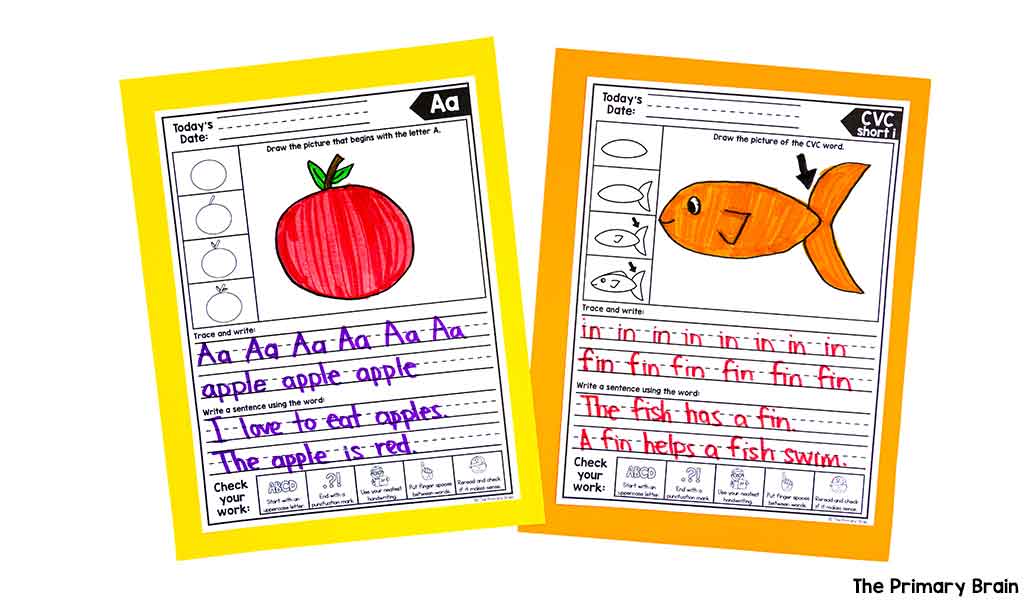 Aa
Today's
Date:
Draw the picture that begins with the letter A.
Trace and write:
Aa Aa Aa Aa Aa Aa
apple apple apple
Write a sentence using the word:
I love to eat apples.
The apple is red.
Check
your
work:
ABCD
Start with an
uppercase letter.
.?!
End with a
punctuation mark.
Use your neatest
handwriting.
Put finger spaces
between words.
Reread and check
if it makes sense.
© The Primary Brain
CVC
short i
Today's
Date:
Draw the picture of the CVC word.
Trace and write:
in in in in in in in in
fin fin fin fin fin fin
Write a sentence using the word:
The fish has a fin.
A fin helps a fish swim.
Check
your
work:
ABCD
Start with an
uppercase letter.
.?!
End with a
punctuation mark.
Use your neatest
handwriting.
Put finger spaces
between words.
Reread and check
if it makes sense.
© The Primary Brain
The Primary Brain